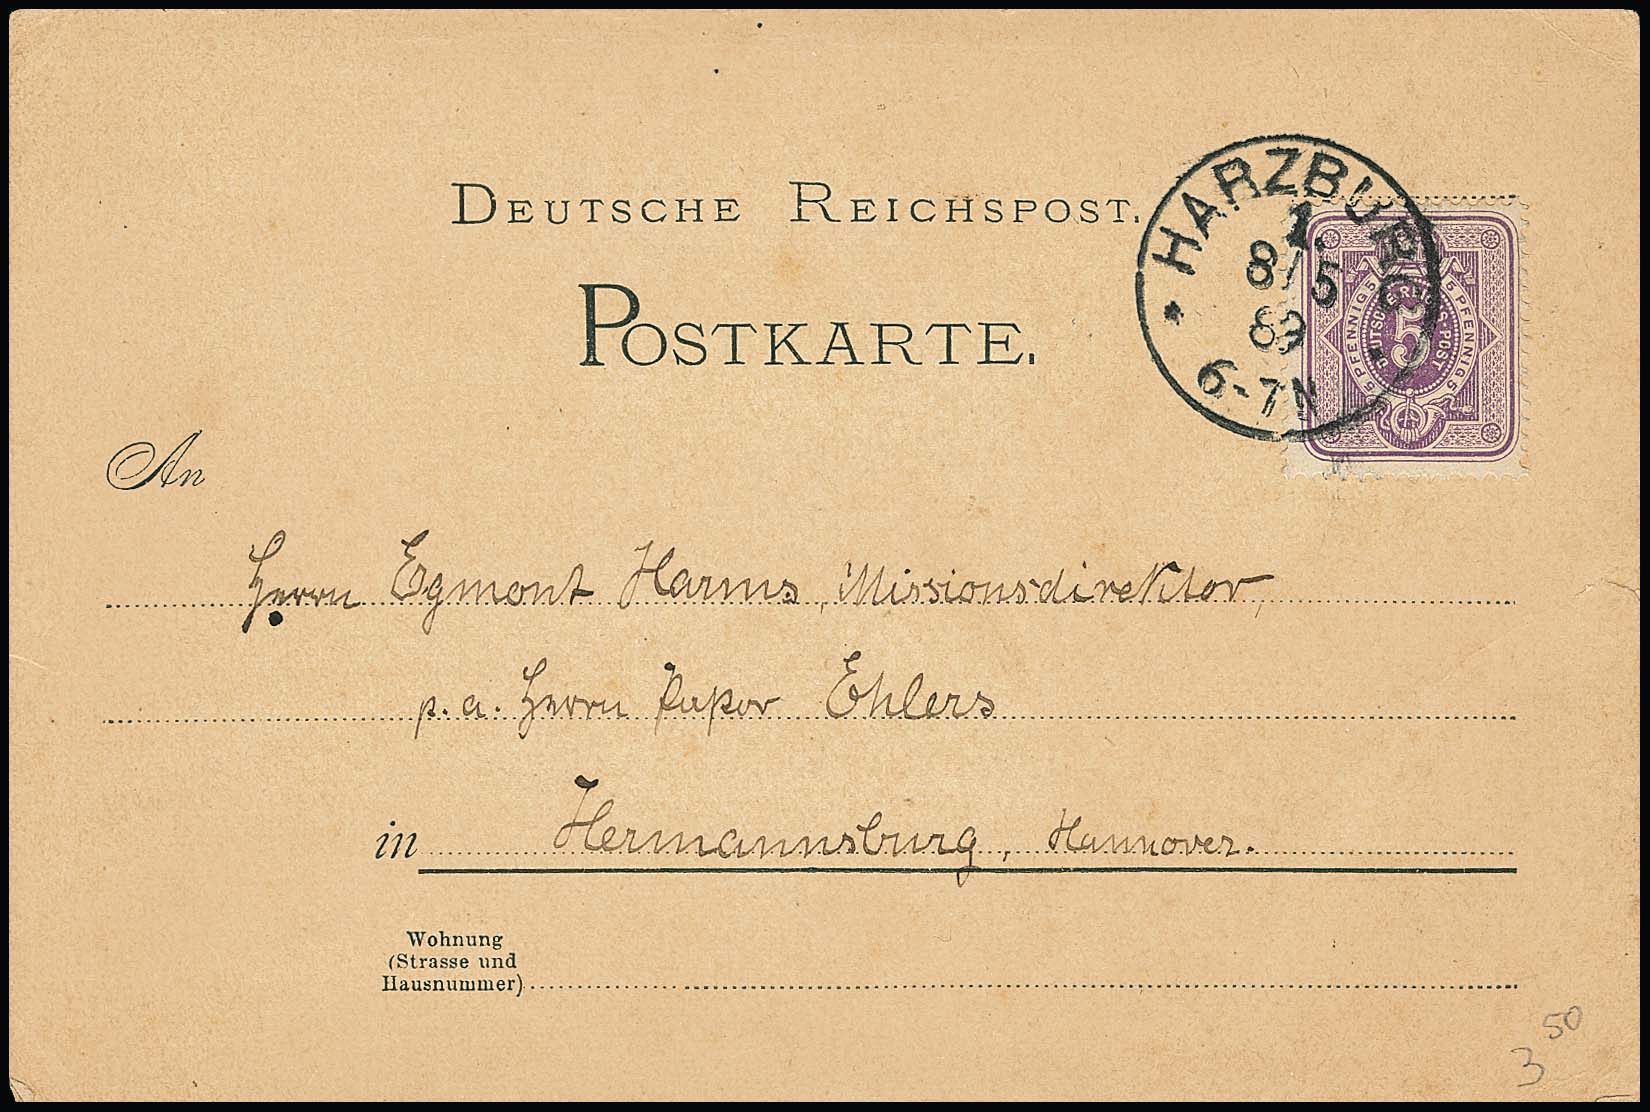 DEUTSCHE REICHSPOST.
POSTKARTE.
HARZBURG
1.
8/5
89
6-7N
5 PFENNIG 5
DEUTSCHE REICHS-POST
5
5 PFENNIG 5
An
Herrn Egmont Harms, Missionsdirektor,
p. a. Herrn Pastor Ehlers
in Hermannsburg, Hannover.
Wohnung
(Strasse und
Hausnummer)
3 50